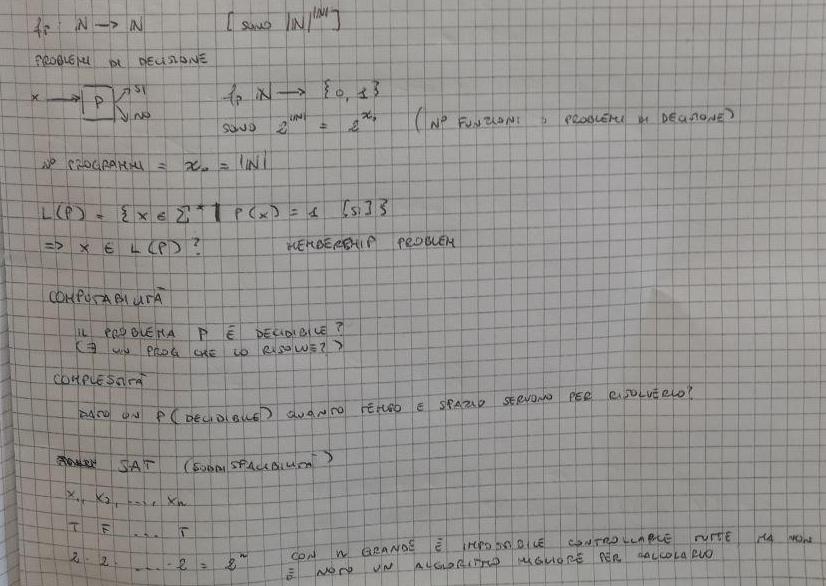 fp : N → N [ sono |N|^|N| ]
PROBLEMI DI DECISIONE
x → P SI NO fp N → {0, 1}
sono 2^|N| = 2^ℵ₀ (N° FUNZIONI PROBLEMI DI DECISIONE)
N° PROGRAMMI = ℵ₀ = |N|
L(P) = { x ∈ Σ* | P(x) = 1 [si] }
=> x ∈ L(P) ? MEMBERSHIP PROBLEM
COMPUTABILITÀ
IL PROBLEMA P È DECIDIBILE?
(∃ UN PROG CHE LO RISOLVE?)
COMPLESSITÀ
DATO UN P (DECIDIBILE) QUANTO TEMPO E SPAZIO SERVONO PER RISOLVERLO?
SAT (SODDISFACIBILITÀ)
x₁, x₂, ...., xn
T F ... T
2 · 2 .... 2 = 2^n CON N GRANDE È IMPOSSIBILE CONTROLLARLE TUTTE MA NON
È NOTO UN ALGORITMO MIGLIORE PER CALCOLARLO